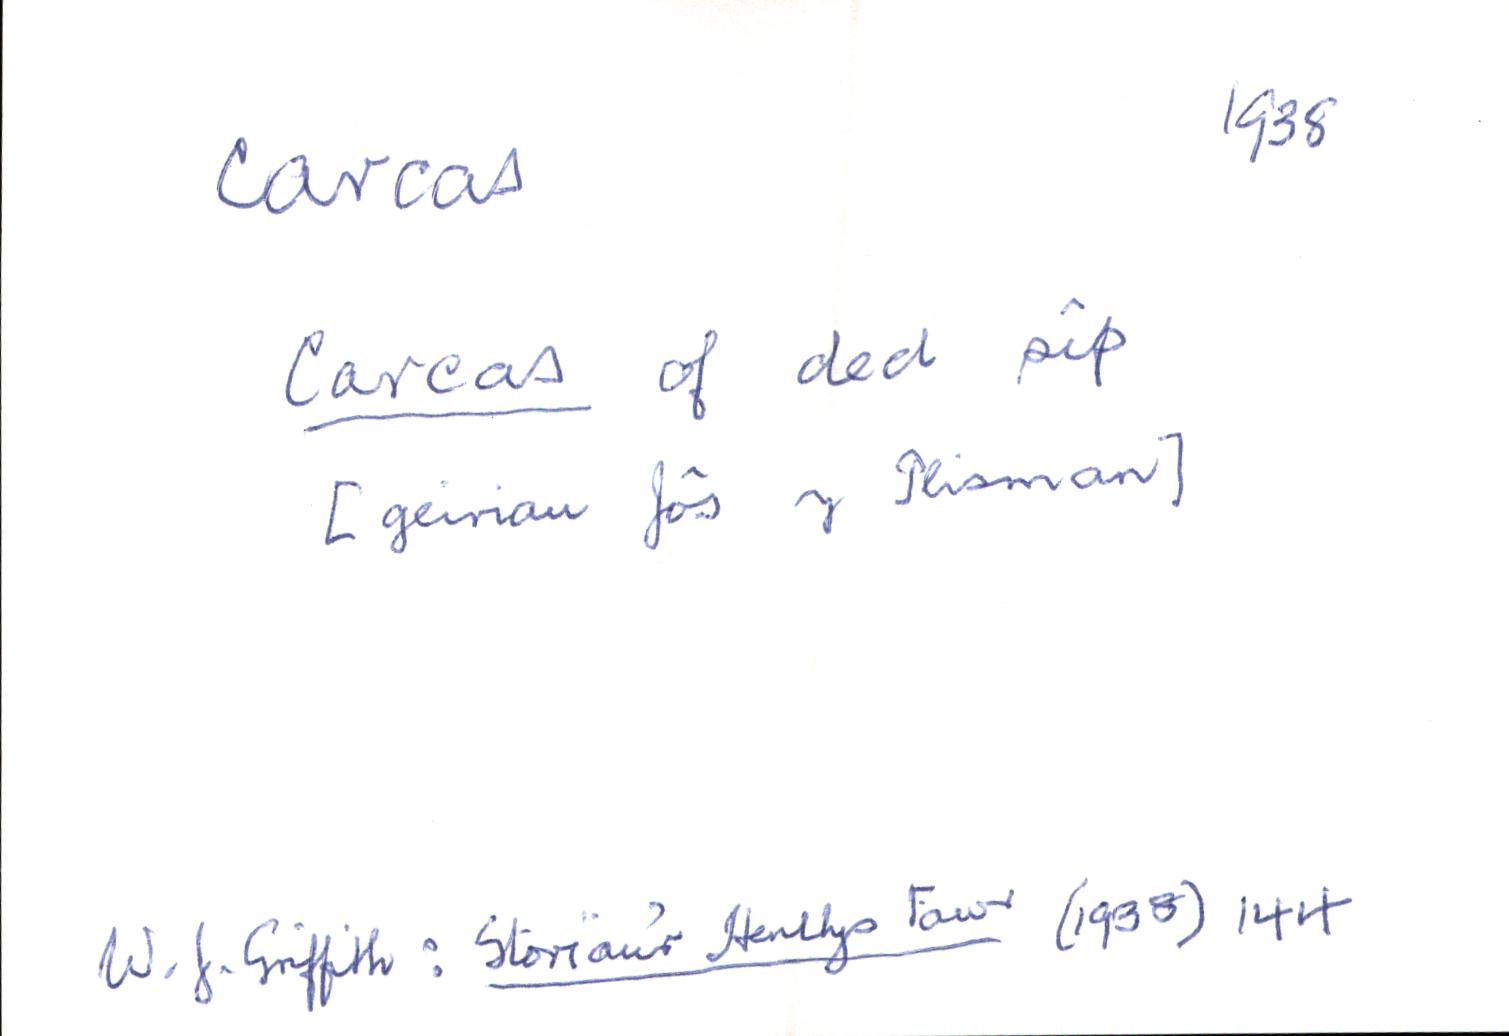 1938
Carcas
Carcas of ded sîp
[geiriau Jôs y Plisman]
W. J. Griffith : Storïau'r Henllys Fawr (1938) 144